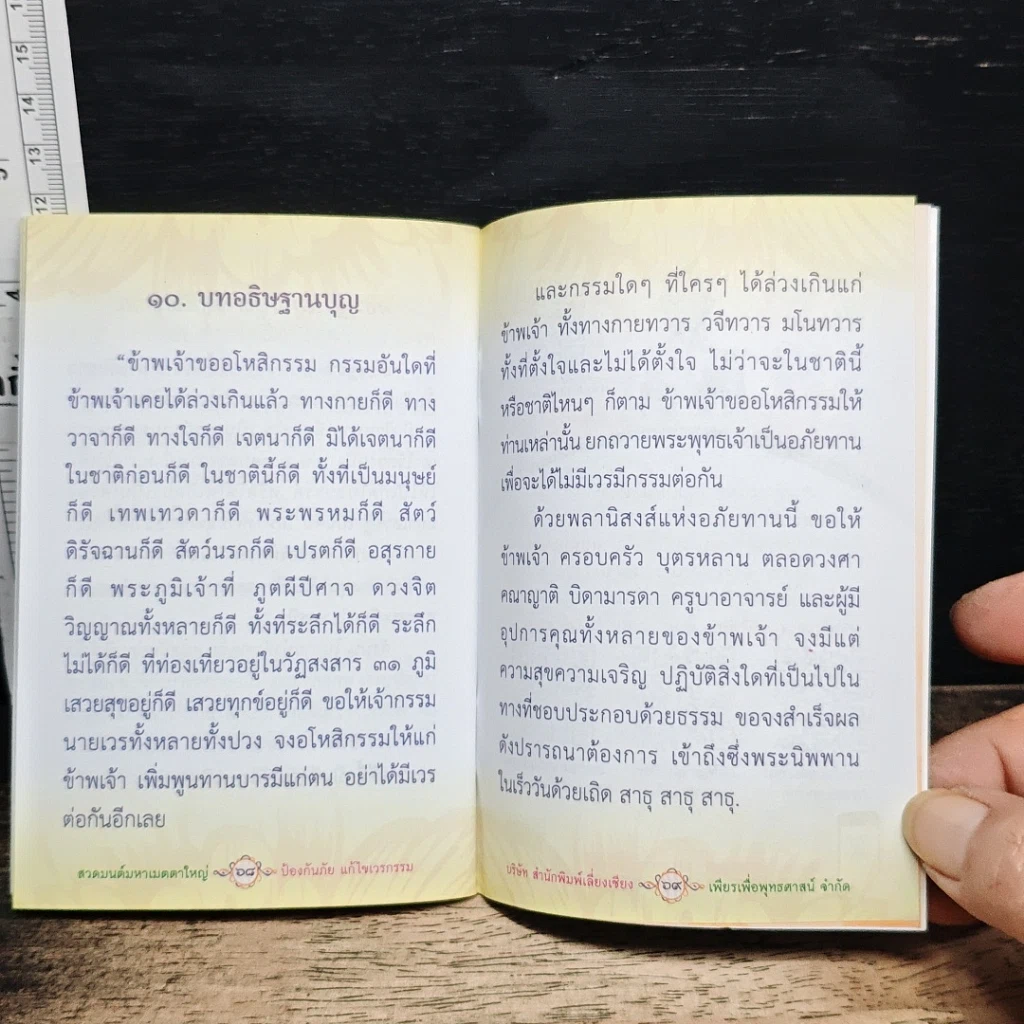 15
14
13
12
๑๐. บทอธิษฐานบุญ
“ข้าพเจ้าขออโหสิกรรม กรรมอันใดที่
ข้าพเจ้าเคยได้ล่วงเกินแล้ว ทางกายก็ดี ทาง
วาจาก็ดี ทางใจก็ดี เจตนาก็ดี มิได้เจตนาก็ดี
ในชาติก่อนก็ดี ในชาตินี้ก็ดี ทั้งที่เป็นมนุษย์
ก็ดี เทพเทวดาก็ดี พระพรหมก็ดี สัตว์
ดิรัจฉานก็ดี สัตว์นรกก็ดี เปรตก็ดี อสุรกาย
ก็ดี พระภูมิเจ้าที่ ภูตผีปีศาจ ดวงจิต
วิญญาณทั้งหลายก็ดี ทั้งที่ระลึกได้ก็ดี ระลึก
ไม่ได้ก็ดี ที่ท่องเที่ยวอยู่ในวัฏสงสาร ๓๑ ภูมิ
เสวยสุขอยู่ก็ดี เสวยทุกข์อยู่ก็ดี ขอให้เจ้ากรรม
นายเวรทั้งหลายทั้งปวง จงอโหสิกรรมให้แก่
ข้าพเจ้า เพิ่มพูนทานบารมีแก่ตน อย่าได้มีเวร
ต่อกันอีกเลย
สวดมนต์มหาเมตตาใหญ่ ๖๘ ป้องกันภัย แก้ไขเวรกรรม
และกรรมใดๆ ที่ใครๆ ได้ล่วงเกินแก่
ข้าพเจ้า ทั้งทางกายทวาร วจีทวาร มโนทวาร
ทั้งที่ตั้งใจและไม่ได้ตั้งใจ ไม่ว่าจะในชาตินี้
หรือชาติไหนๆ ก็ตาม ข้าพเจ้าขออโหสิกรรมให้
ท่านเหล่านั้น ยกถวายพระพุทธเจ้าเป็นอภัยทาน
เพื่อจะได้ไม่มีเวรมีกรรมต่อกัน
ด้วยพลานิสงส์แห่งอภัยทานนี้ ขอให้
ข้าพเจ้า ครอบครัว บุตรหลาน ตลอดวงศา
คณาญาติ บิดามารดา ครูบาอาจารย์ และผู้มี
อุปการคุณทั้งหลายของข้าพเจ้า จงมีแต่
ความสุขความเจริญ ปฏิบัติสิ่งใดที่เป็นไปใน
ทางที่ชอบประกอบด้วยธรรม ขอจงสำเร็จผล
ดังปรารถนาต้องการ เข้าถึงซึ่งพระนิพพาน
ในเร็ววันด้วยเถิด สาธุ สาธุ สาธุ.
บริษัท สำนักพิมพ์เลี่ยงเชียง ๖๙ เพียรเพื่อพุทธศาสน์ จำกัด